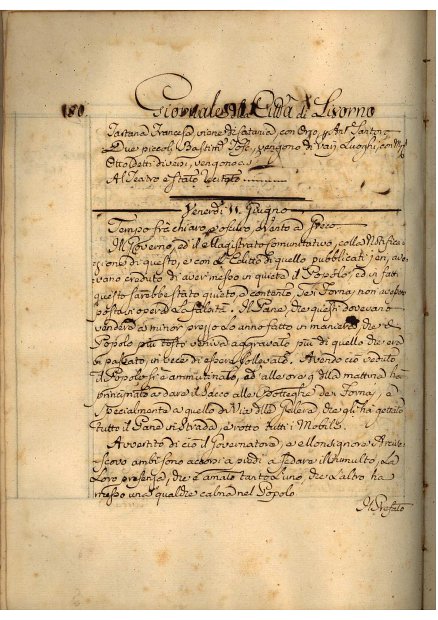 180.
Giornale della Città di Livorno
Tartana Francesa, viene di Catania, con Orzo, p. Ant. Santoni
Due piccoli Bastim. Tosc. vengono di Varij Luoghi, con
Otto detti diversi, vengono
Al Teatro è stato Recitato
Venerdì 11 Giugno
Tempo frà chiaro, e oscuro, Vento a Greco.
Il Governo, ed il Magistrato Comunitativo, colla Notifica-
zione di questo, e con l'Editto di quello pubblicati jeri, ave-
vano creduto di aver messo in quieta il Popolo, ed in fatti
questo sarebbe stato quieto, e contento, se i Fornaj non avessero
posta in opera la falsità. Il Pane, che questi dovevano
vendere a minor prezzo lo anno fatto in maniera che il
Popolo più tosto veniva aggravato più di quello che era
in passato, in vece di essere sollevato. Avendo ciò veduto
il Popolo si è ammutinato, ed alle ore 9 della mattina ha
principiato a dare il sacco alle Botteghe dei Fornaj, e
specialmente a quello di Via della che gli ha gettato
tutto il Pane in Strada, e rotto tutti i Mobili.
Avvertito di ciò il Governatore, e Monsignore Arcive-
scovo ambi sono accorsi a piedi a sedare il tumulto. La
Loro presenza, che è amato tanto l'uno, che l'altro ha
messo una qualche calma nel Popolo
Il Prefato